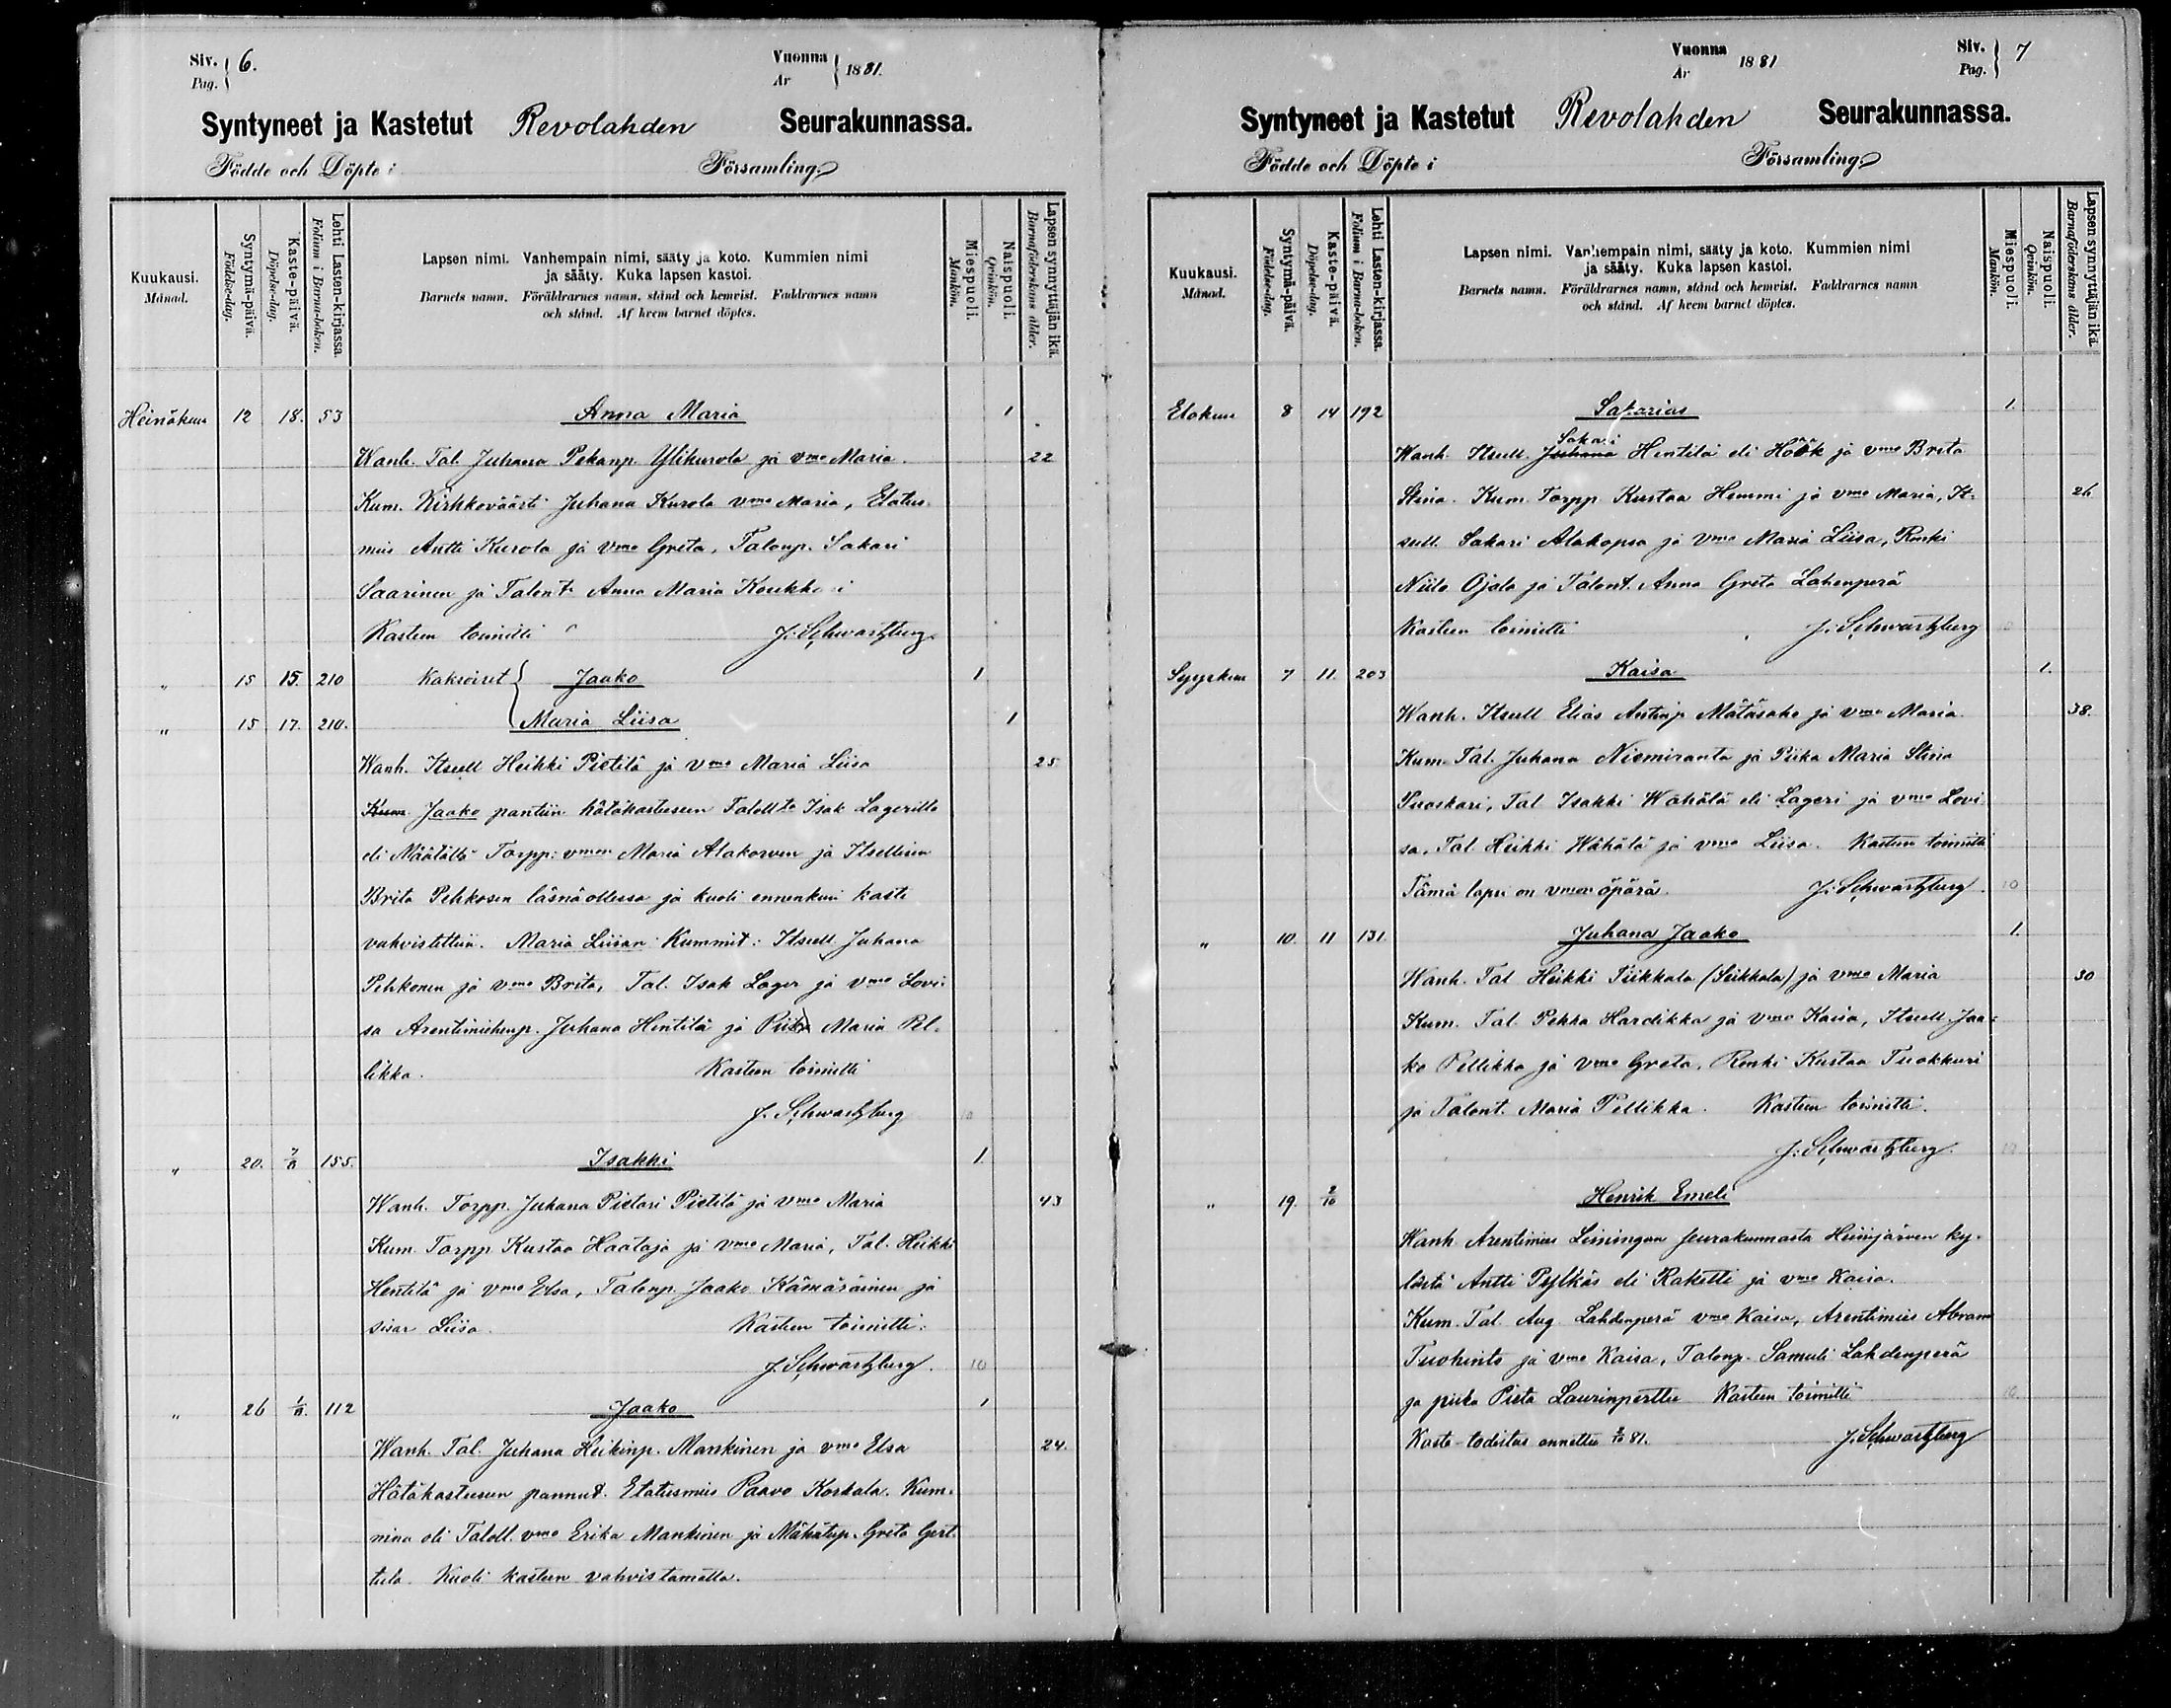 Siv. Pag. 6.
Vuonna År 1881.
Syntyneet ja Kastetut Revolahden Seurakunnassa.
Födde och Döpte i Församling.
Kuukausi. Månad.
Syntymä-päivä. Födelse-dag.
Kaste-päivä. Döpelse-dag.
Lehti Lasten-kirjassa. Folium i Barna-boken.
Lapsen nimi. Vanhempain nimi, sääty ja koto. Kummien nimi
ja sääty. Kuka lapsen kastoi.
Barnets namn. Föräldrarnes namn, stånd och hemvist. Faddrarnes namn
och stånd. Af hvem barnet döptes.
Miespuoli. Mankön.
Naispuoli. Qvinkön.
Lapsen synnyttäjän ikä. Barnaföderskans ålder.
Heinäkuu 12 18. 53 Anna Maria 1
Wanh. Tal. Juhana Pekanp. Ylikurola ja vmo Maria. 22
Kum. Kirkkoväärti Juhana Kurola vmo Maria, Elatus-
mies Antti Kurola ja vmo Greta, Talonp. Sakari
Saarinen ja Talont. Anna Maria Koukko i
Kasteen toimitti J. Schwartzberg.
" 15 15. 210 Kaksoiset Jaako 1
" 15 17. 210. Maria Liisa 1
Wanh. Itsell Heikki Pietilä ja vmo Maria Liisa 25
Kum Jaako pantiin hätäkasteseen Talollta Isak Lagerilta
eli Määtältä Torpp: vmon Maria Alakorven ja Itsellisen
Brita Pehkosen läsnäollessa ja kuoli ennenkuin kaste
vahvistettiin. Maria Liisan Kummit: Itsell Juhana
Pehkonen ja vmo Brita, Tal. Isak Lager ja vmo Lovi-
sa Arentimiehenp. Juhana Hentilä ja Piika Maria Pel-
likka. Kasteen toimitti
J. Schwartzberg 10
" 20. 7/8 155. Isakki 1.
Wanh. Torpp. Juhana Pietari Pietilä ja vmo Maria 43
Kum. Torpp Kustaa Haataja ja vmo Maria, Tal. Heikki
Hentilä ja vmo Elsa, Talonp. Jaako Kämäräinen ja
sisar Liisa. Kasteen toimitti:
J. Schwartzberg. 10
" 26 1/8. 112 Jaako 1
Wanh. Tal. Juhana Heikinp. Manskinen ja vmo Elsa 24.
Hätäkasteseen pannut. Elatusmies Paavo Korkala. Kum-
mina oli Taloll. vmo Erika Mankinen ja Mäkitup. Greta Gert-
tula. Kuoli kasteen vahvistamatta.
Vuonna År 1881
Siv. Pag. 7
Syntyneet ja Kastetut Revolahden Seurakunnassa.
Födde och Döpte i Församling.
Kuukausi. Månad.
Syntymä-päivä. Födelse-dag.
Kaste-päivä. Döpelse-dag.
Lehti Lasten-kirjassa. Folium i Barna-boken.
Lapsen nimi. Vanhempain nimi, sääty ja koto. Kummien nimi
ja sääty. Kuka lapsen kastoi.
Barnets namn. Föräldrarnes namn, stånd och hemvist. Faddrarnes namn
och stånd. Af hvem barnet döptes.
Miespuoli. Mankön.
Naispuoli. Qvinkön.
Lapsen synnyttäjän ikä. Barnaföderskans ålder.
Elokuu 8 14 192 Sakarias 1.
Sakari
Wanh. Itsell. Juhana Hentilä eli Höök ja vmo Brita
Stina. Kum. Torpp. Kustaa Hemmi ja vmo Maria, It- 26
sell. Sakari Alakopsa ja vmo Maria Liisa, Renki
Niilo Ojala ja Talont. Anna Greta Lahenperä
Kasteen toimitti J. Schwartzberg
Syyskuu 7 11. 203 Kaisa 1.
Wanh. Itsell Elias Antinp Mätäsaho ja vmo Maria 38.
Kum. Tal. Juhana Niemiranta ja Piika Maria Stina
Puoskari, Tal Isakki Wähälä eli Lageri ja vmo Lovi
sa, Tal. Heikki Wähälä ja vmo Liisa. Kasteen toimitti
Tämä lapsi on vmon äpärä. J. Schwartzberg. 10
" 10. 11 131. Juhana Jaako 1.
Wanh. Tal Heikki Siikkala (Siikkala) ja vmo Maria 30
Kum. Tal. Pekka Hardikka ja vmo Kaisa, Itsell. Jaa-
ko Pellikka ja vmo Greta, Renki Kustaa Tuokkuri
ja Talont. Maria Pellikka. Kasteen toimitti.
J. Schwartzberg. 10
" 19. 2/10 Henrik Emeli
Wanh Arentimies Limingan seurakunnasta Heinijärven ky-
lästä Antti Pylkäs eli Raketti ja vmo Kaisa.
Kum. Tal. Aug Lahdenperä vmo Kaisa, Arentimies Abram
Tuohinto ja vmo Kaisa, Talonp. Samuli Lahdenperä
ja piika Pieta Laurinperttu Kasteen toimitti 10.
Kaste-todistus annettu 81. J. Schwartzberg